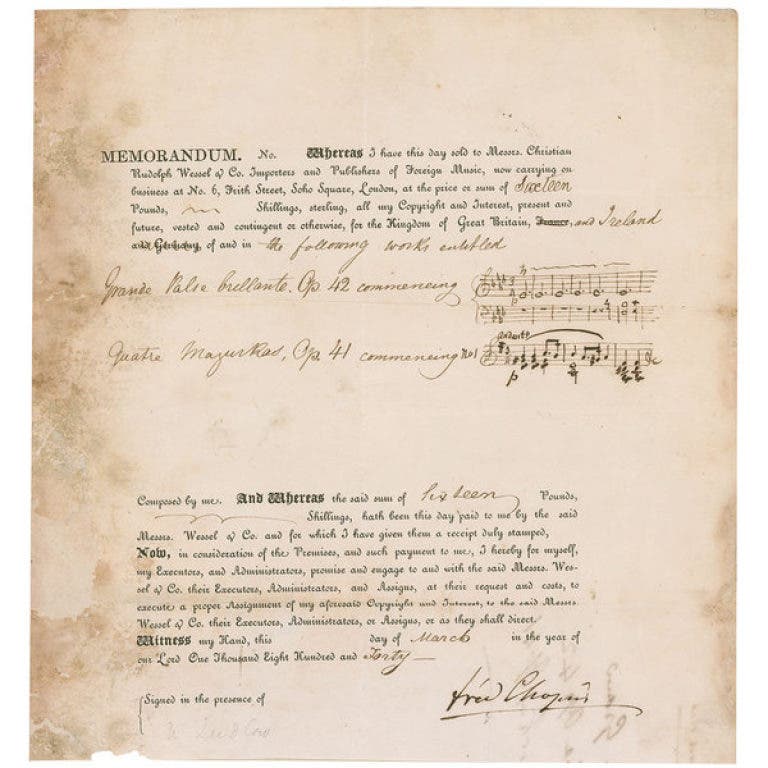 MEMORANDUM. No. Whereas I have this day sold to Messrs. Christian
Rudolph Wessel & Co. Importers and Publishers of Foreign Music, now carrying on
business at No. 6, Frith Street, Soho Square, London, at the price or sum of Sixteen
Pounds, Shillings, sterling, all my Copyright and Interest, present and
future, vested and contingent or otherwise, for the Kingdom of Great Britain, France, and Ireland
and Germany, of and in the following works entitled
Grande Valse brillante. Op 42 commencing
Quatre Mazurkas, Op 41 commencing No 1
andante
p
p
Composed by me. And Whereas the said sum of Sixteen Pounds,
Shillings, hath been this day paid to me by the said
Messrs. Wessel & Co. and for which I have given them a receipt duly stamped,
Now, in consideration of the Premises, and such payment to me, I hereby for myself,
my Executors, and Administrators, promise and engage to and with the said Messrs. Wes-
sel & Co. their Executors, Administrators, and Assigns, at their request and costs, to
execute a proper Assignment of my aforesaid Copyright and Interest, to the said Messrs.
Wessel & Co. their Executors, Administrators, or Assigns, or as they shall direct.
Witness my Hand, this day of March in the year of
our Lord One Thousand Eight Hundred and Forty
Signed in the presence of
fréd Chopin